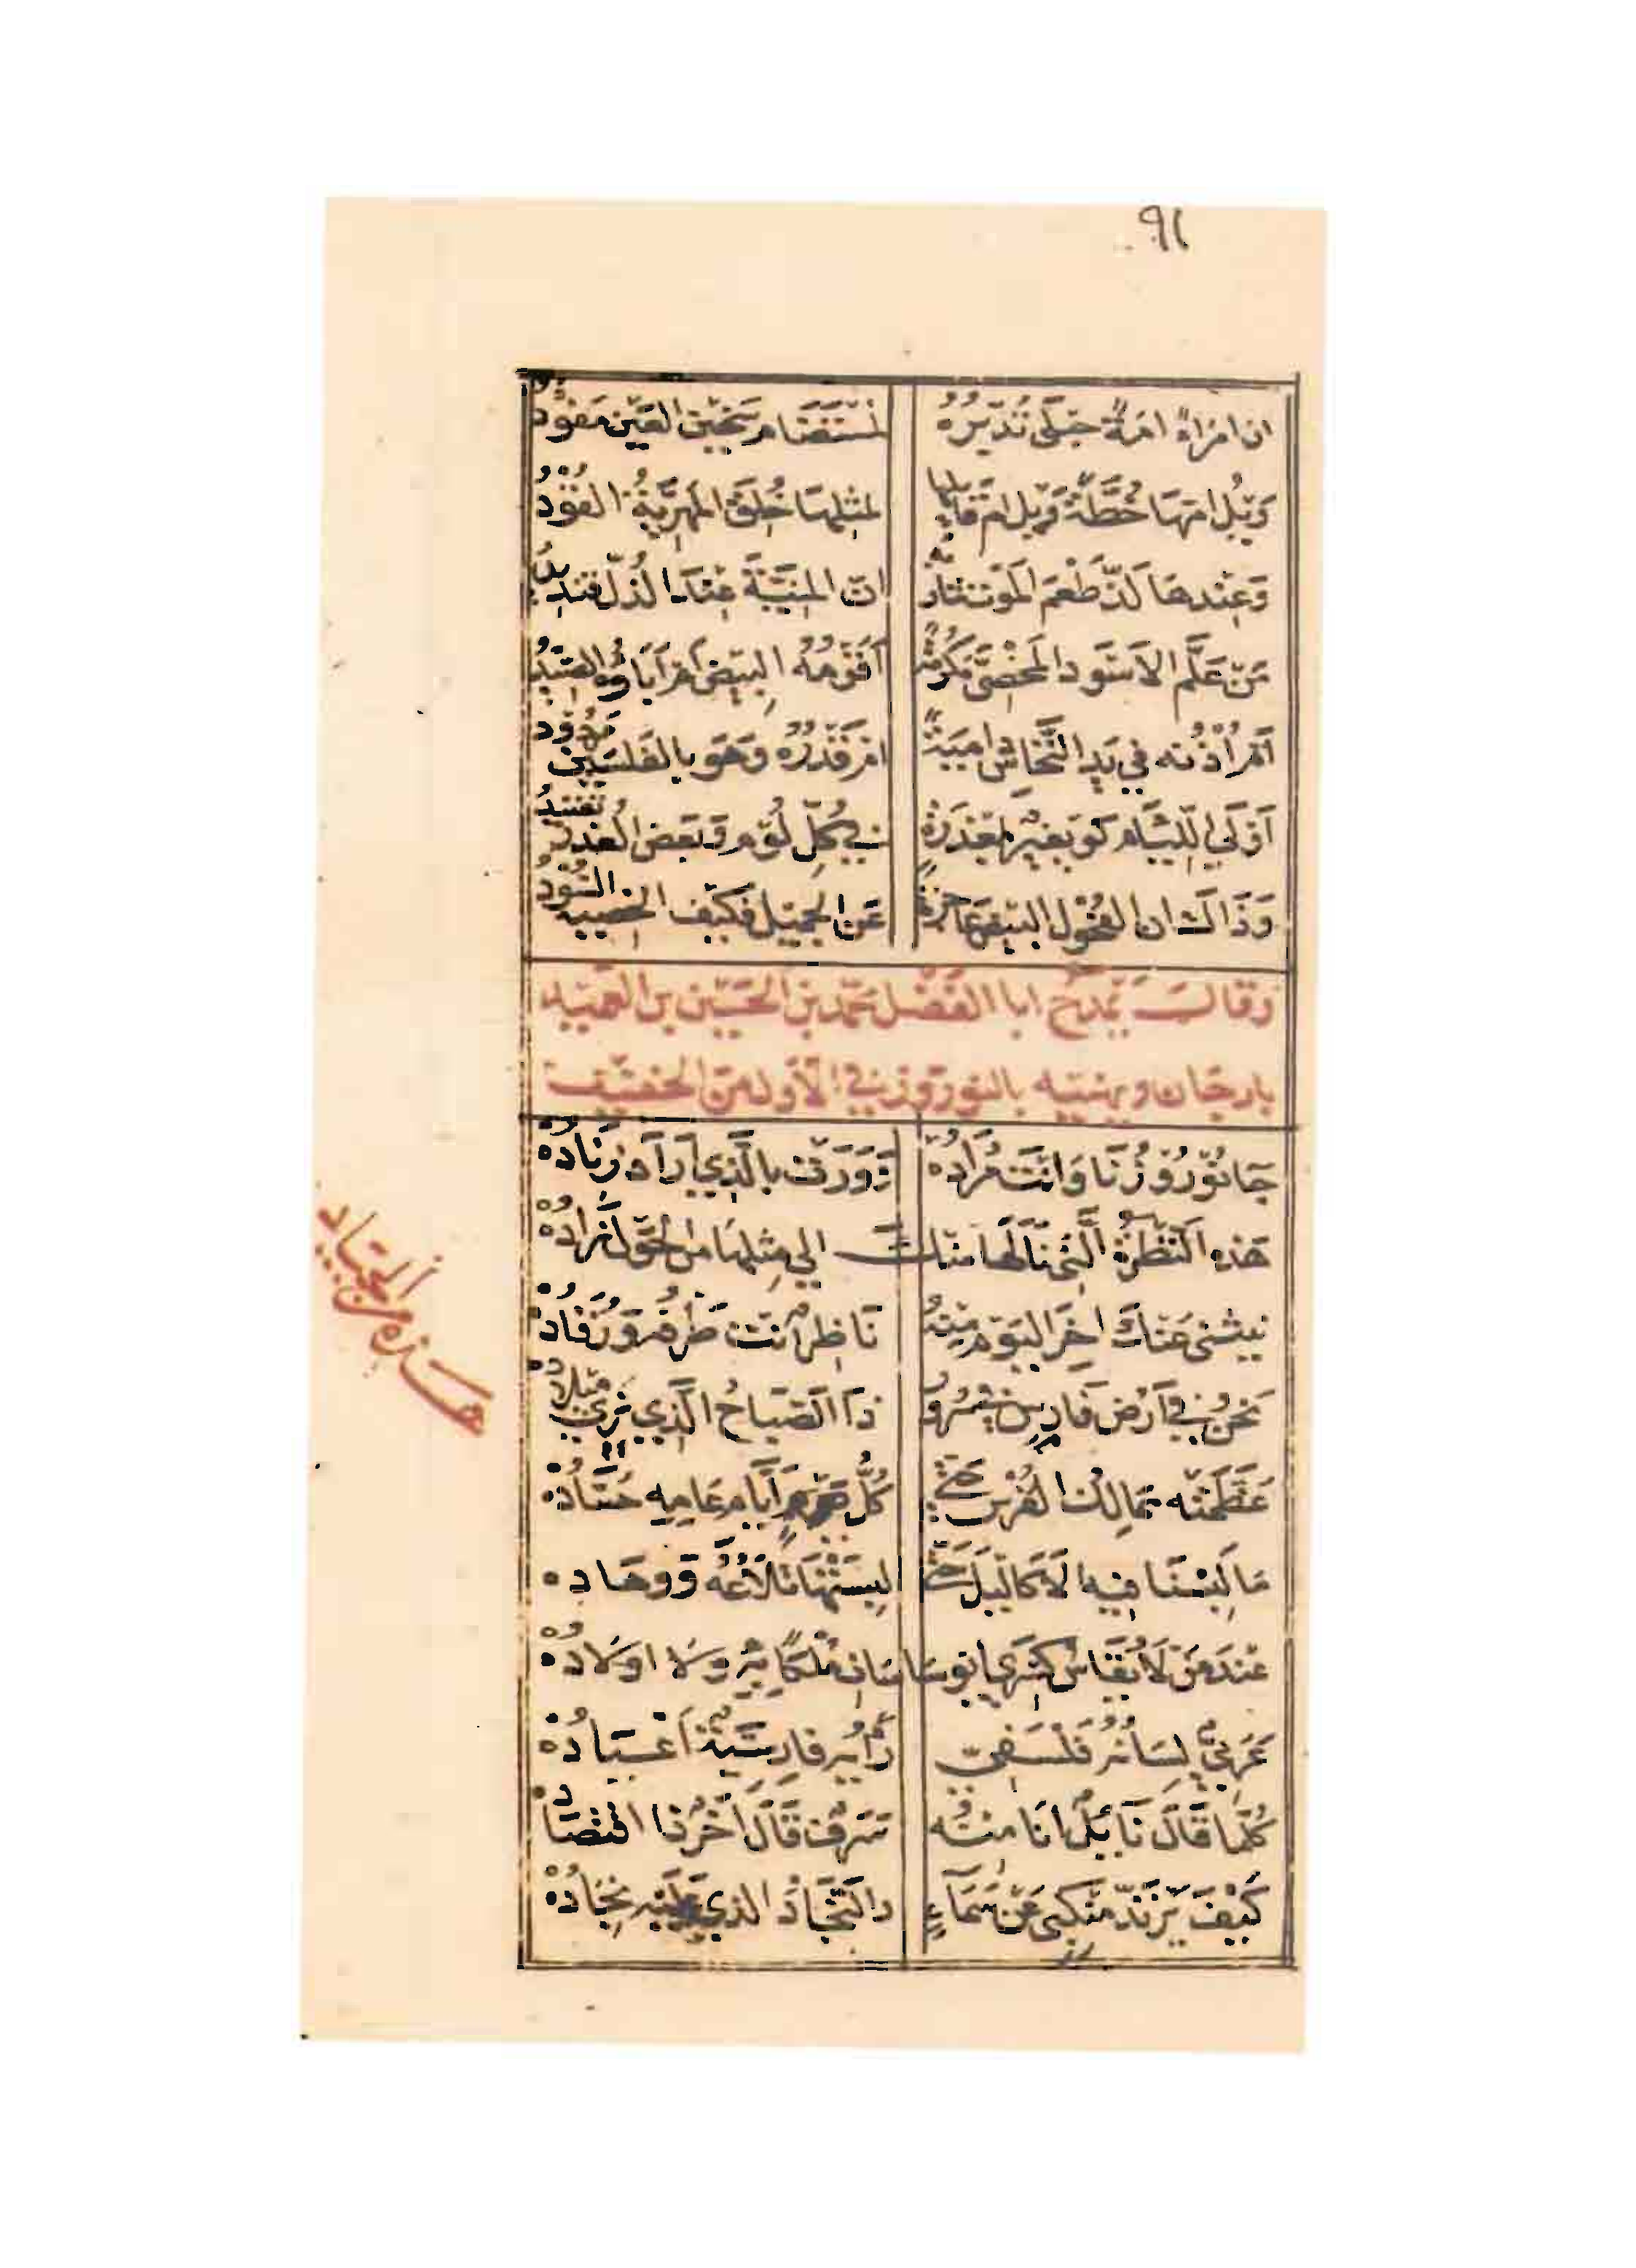 ٩١
ان امرأً امَةٌ حبلَى تُدَبّرُهُ لمُسْتَضَام سَخين العَين مَفؤدُ
وَيْلُ امّهَا خُطّةً وَيل امّ قابلها لمثلها خُلقَ المَهريّةُ القُوْدُ
وَعِنْدها لَذّ طَعْمَ المَوت شاربُه ان المنيّةَ عندَ الذلّ قنديدُ
مَنْ عَلّم الاسْوَد المَخْصيَّ مَكرُمَةً أقَوْمُهُ البيْضُ امْ آبَاؤُه الصّيْدُ
أمْ أذْنُه في يَد النّخّاس داميَةً امْ قَدْرُه وَهَو بالفلسَيْن مَرْدُودُ
أوْلَي اللّئَام كوَيفيْر بمَعْذرَةٍ في كُلّ لُؤم وَبَعض العُذر تَفنيدُ
وَذَاك ان الفُحُول البيْض عَاجزةٌ عَن الجميْل فكَيْف الخصيية السُّوْدُ
وقال يَمْدَحُ ابا الفَضْل محمّد بن الحسَين بن العَميد
بارجَان ويهنيه بالنوروز في الأوّل من الخفيف
جَا نَوْرُوْزُنَا وَانْتَ مُرَادُهْ وَوَرَتْ بالّذي أرَادَ زنَادُهْ
هَذه النّظرَةُ الّتي نَالَها منك الي مثلهَا من الحَوْل زَادُهْ
ينثني عَنْكَ اخرَ اليَوْم منْهُ نَاظرٌ أنتَ طَرْفُه وَرُقَادُهْ
نَحْنُ في أرْض فَارس في سُرُورٍ ذَا الصّبَاحُ الّذي نري ميلادُهْ
عَظّمَتْه ممَالكُ الفُرْس حَتّي كُلُّ أيّام عَامه حُسّادُهْ
مَا لَبسْنَا فيه الاكَاليلَ حَتّي لبسَتْهَا تلاَعُهُ وَوهَادهْ
عنْدَ مَنْ لاَ يُقَاسُ كسْري ابو سَاسَان مُلْكًا به وَلاَ اوْلاَدُهْ
عَرَبيٌّ لسَانُه فَلْسَفيّ رَأيُه فارسيّةٌ أعْيَادُهْ
كُلّمَا قَالَ نَائلٌ أنَا منْهُ سَرَفٌ قَالَ أخَرٌ ذا اقتصَادُهْ
كَيْفَ يَرْتَدّ مَنْكبي عَنْ سَمَاءٍ والنّجَادُ الذي عَلَيْه نجَادُهْ
هذه من الجياد